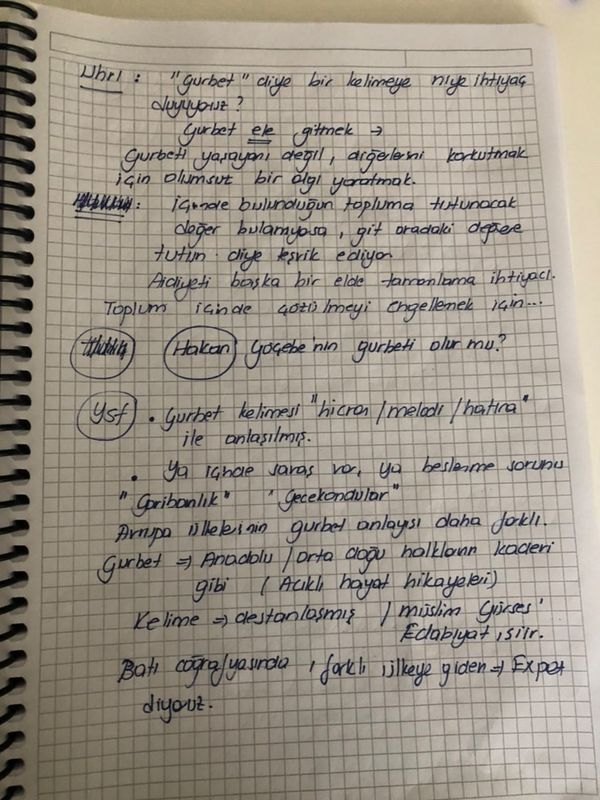 Uhri : "Gurbet" diye bir kelimeye niye ihtiyaç
duyuyoruz?
Gurbet ele gitmek →
Gurbeti yaşayanı değil, diğerlerini korkutmak
için olumsuz bir algı yaratmak.
: İçinde bulunduğun topluma tutunacak
değer bulamıyosa, git oradaki değere
tutun diye teşvik ediyor
Aidiyeti başka bir elde tamamlama ihtiyacı.
Toplum içinde çözülmeyi engellemek için...
Hakan Göçebe'nin gurbeti olur mu?
Ysf • Gurbet kelimesi "hicran / melodi / hatıra"
ile anlaşılmış.
• Ya içinde savaş var, ya beslenme sorunu
"Garibanlık" "gecekondular"
Avrupa ülkelerinin gurbet anlayışı daha farklı.
Gurbet ⇒ Anadolu / orta doğu halkların kaderi
gibi (Acıklı hayat hikayeleri)
Kelime ⇒ destanlaşmış / müslim Gürses'
Edabiyat, şiir.
Batı coğrafyasında, farklı ülkeye giden ⇒ Expat
diyoruz.